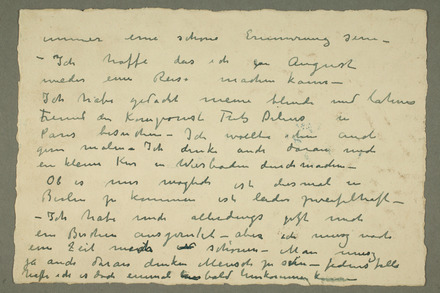 immer eine schöne Erinnerung sein –
– Ich hoffe das ich im August
wieder eine Reise machen kann –
Ich habe gedacht meine blinde und lahme
Freund den Komponist Delius in
Paris besuchen – Ich wollte ihn auch
gern malen – Ich denke auch daran noch
ein kleine Kur in Wiesbaden durchmachen –
Ob es mir möglich ist diesmal in
Berlin zu kommen ist leider zweifelhaft –
– Ich habe mich allerdings jetzt noch
ein Bischen ausgeruht – aber ich muss noch
eine Zeit mich schonen – Man muss
ja auch daran denken Mensch zu sein – jedenfalls
hoffe ich es doch einmal bald hinkommen